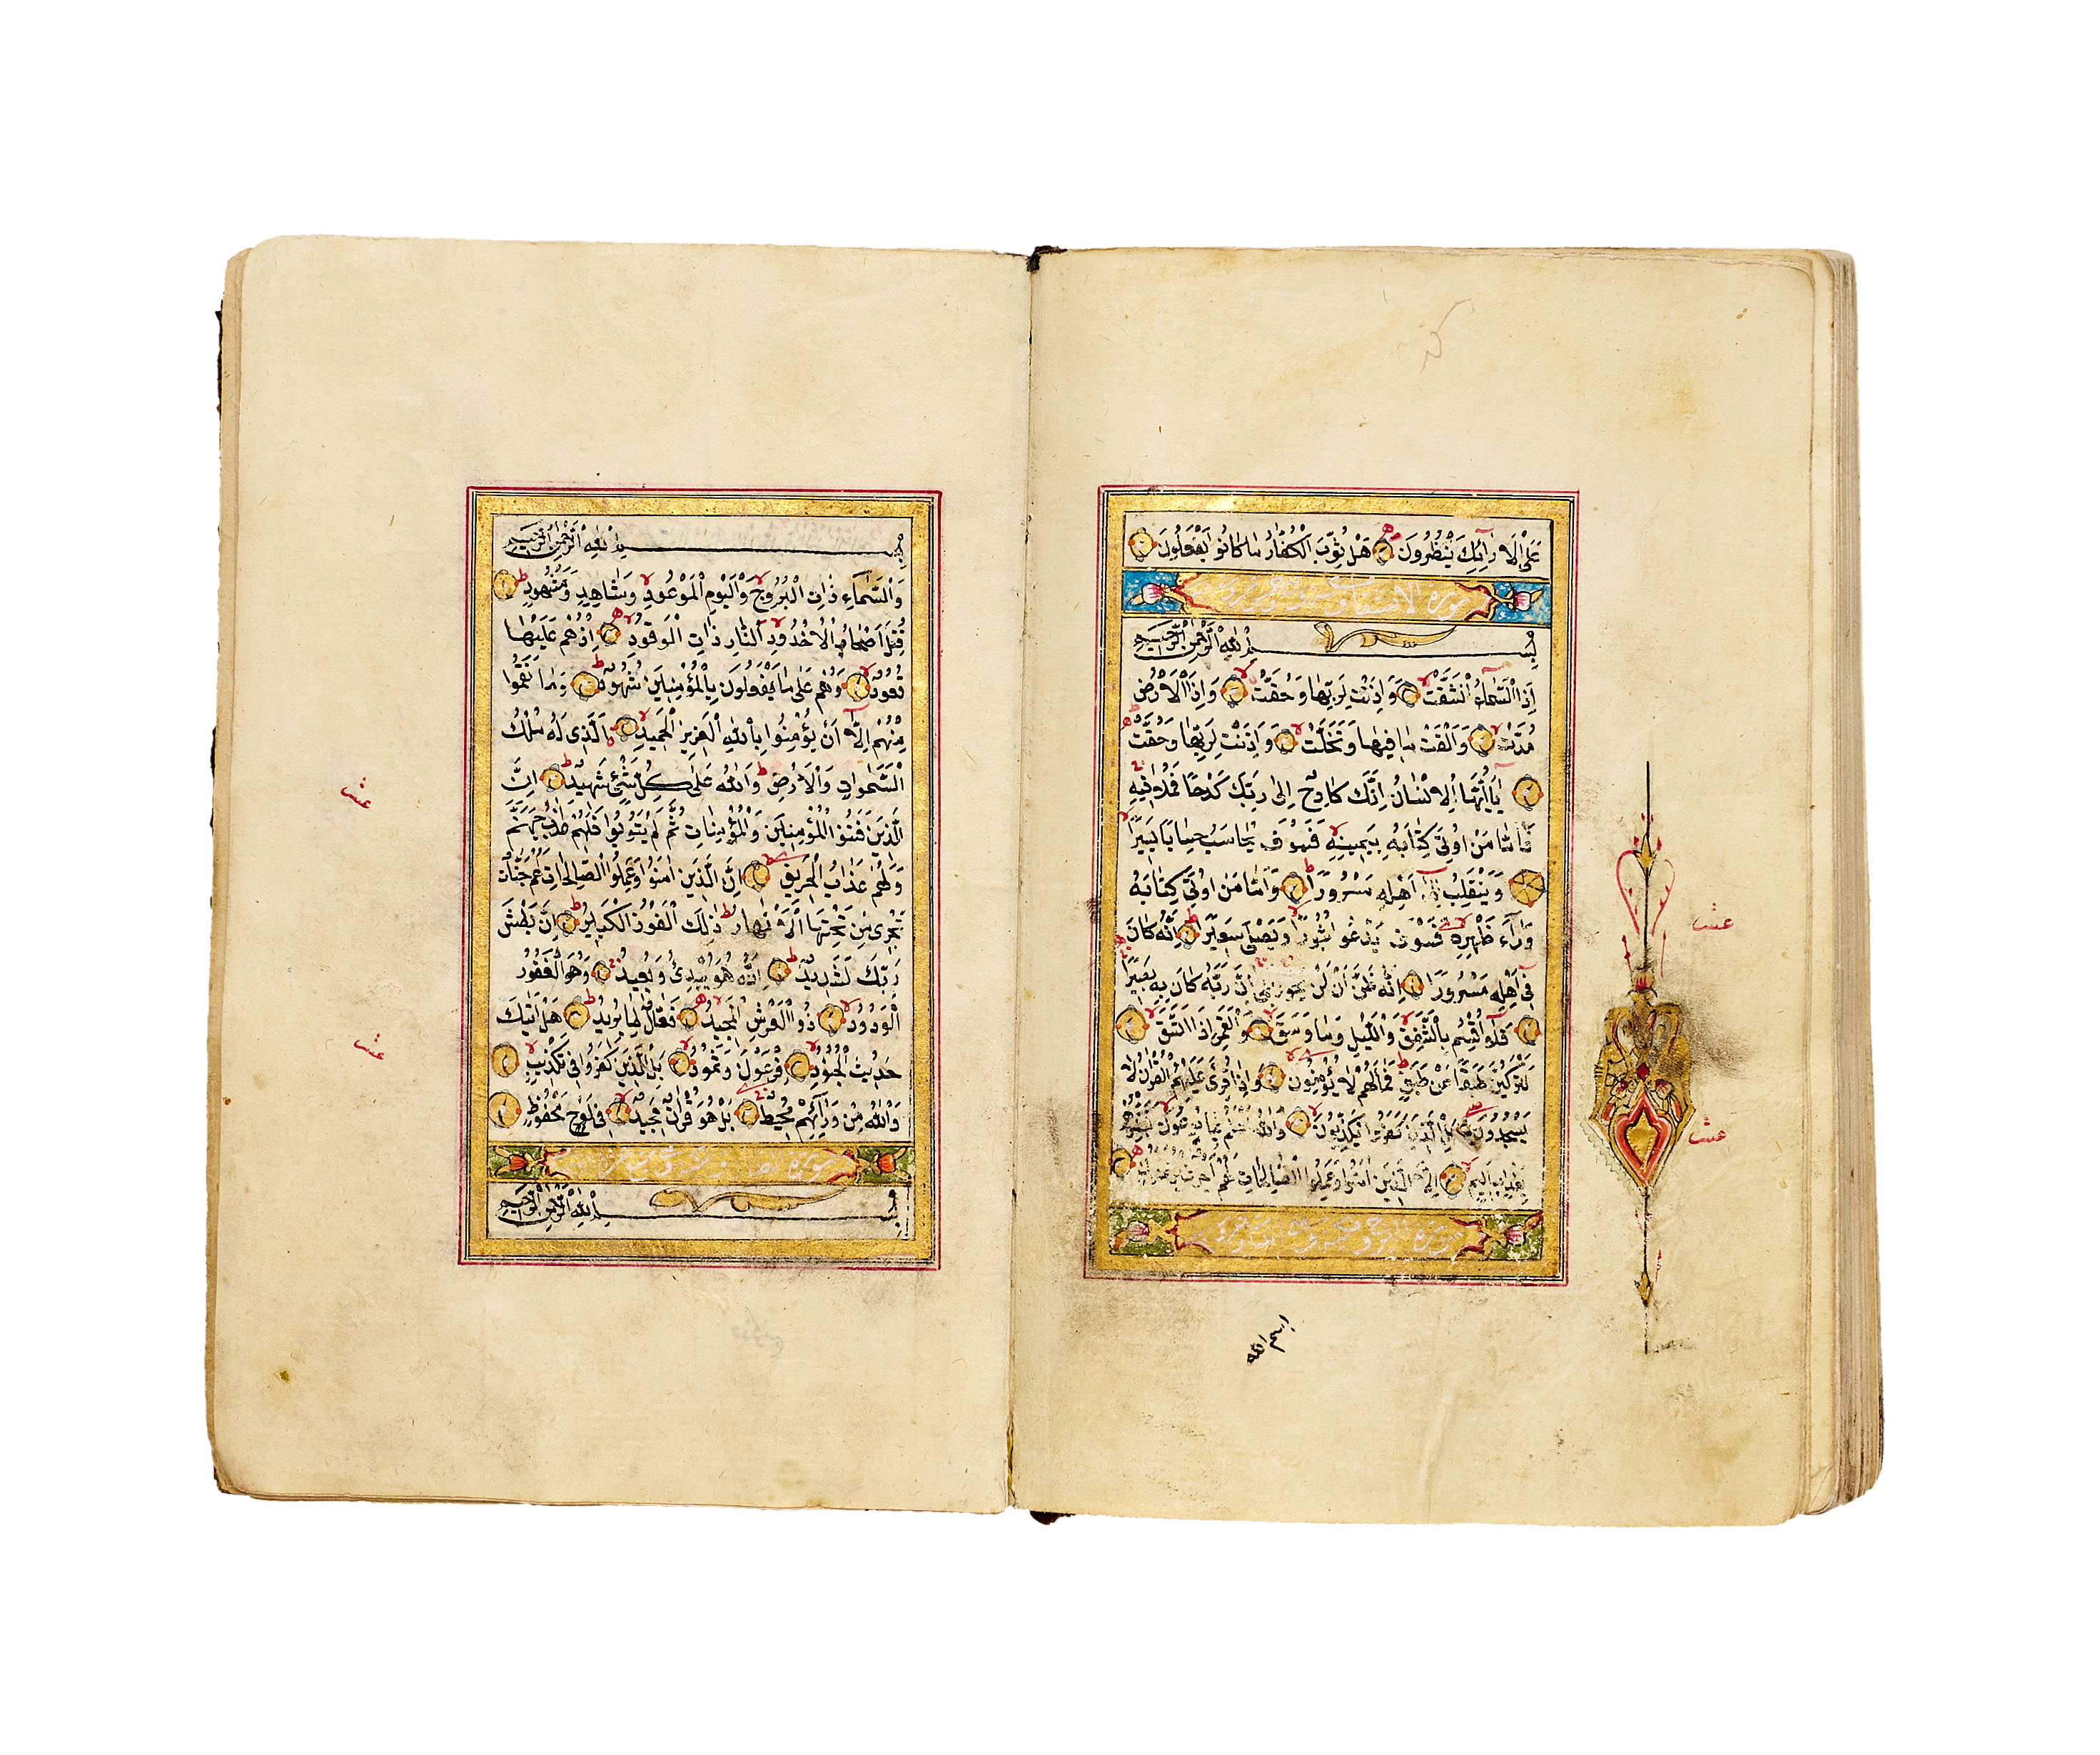 عَلَى الْاَرَائِكِ يَنْظُرُونَ هَلْ ثُوِّبَ الْكُفَّارُ مَا كَانُوا يَفْعَلُونَ
سورة الانشقاق
بِسْمِ اللّٰهِ الرَّحْمٰنِ الرَّحِيمِ
اِذَا السَّمَاءُ انْشَقَّتْ وَاَذِنَتْ لِرَبِّهَا وَحُقَّتْ وَاِذَا الْاَرْضُ
مُدَّتْ وَاَلْقَتْ مَا فِيهَا وَتَخَلَّتْ وَاَذِنَتْ لِرَبِّهَا وَحُقَّتْ
يَا اَيُّهَا الْاِنْسَانُ اِنَّكَ كَادِحٌ اِلٰى رَبِّكَ كَدْحًا فَمُلَاقِيهِ
فَاَمَّا مَنْ اُوتِيَ كِتَابَهُ بِيَمِينِهِ فَسَوْفَ يُحَاسَبُ حِسَابًا يَسِيرًا
وَيَنْقَلِبُ اِلٰى اَهْلِهِ مَسْرُورًا وَاَمَّا مَنْ اُوتِيَ كِتَابَهُ
وَرَاءَ ظَهْرِهِ فَسَوْفَ يَدْعُو ثُبُورًا وَيَصْلٰى سَعِيرًا اِنَّهُ كَانَ
فِي اَهْلِهِ مَسْرُورًا اِنَّهُ ظَنَّ اَنْ لَنْ يَحُورَ بَلٰى اِنَّ رَبَّهُ كَانَ بِهِ بَصِيرًا
فَلَا اُقْسِمُ بِالشَّفَقِ وَاللَّيْلِ وَمَا وَسَقَ وَالْقَمَرِ اِذَا اتَّسَقَ
لَتَرْكَبُنَّ طَبَقًا عَنْ طَبَقٍ فَمَا لَهُمْ لَا يُؤْمِنُونَ وَاِذَا قُرِئَ عَلَيْهِمُ الْقُرْاٰنُ لَا
يَسْجُدُونَ بَلِ الَّذِينَ كَفَرُوا يُكَذِّبُونَ وَاللّٰهُ اَعْلَمُ بِمَا يُوعُونَ فَبَشِّرْهُمْ
بِعَذَابٍ اَلِيمٍ اِلَّا الَّذِينَ اٰمَنُوا وَعَمِلُوا الصَّالِحَاتِ لَهُمْ اَجْرٌ غَيْرُ مَمْنُونٍ
سورة البروج
عشـ
عشـ
بسم الله
بِسْمِ اللّٰهِ الرَّحْمٰنِ الرَّحِيمِ
وَالسَّمَاءِ ذَاتِ الْبُرُوجِ وَالْيَوْمِ الْمَوْعُودِ وَشَاهِدٍ وَمَشْهُودٍ
قُتِلَ اَصْحَابُ الْاُخْدُودِ النَّارِ ذَاتِ الْوَقُودِ اِذْ هُمْ عَلَيْهَا
قُعُودٌ وَهُمْ عَلٰى مَا يَفْعَلُونَ بِالْمُؤْمِنِينَ شُهُودٌ وَمَا نَقَمُوا
مِنْهُمْ اِلَّا اَنْ يُؤْمِنُوا بِاللّٰهِ الْعَزِيزِ الْحَمِيدِ اَلَّذِي لَهُ مُلْكُ
السَّمٰوَاتِ وَالْاَرْضِ وَاللّٰهُ عَلٰى كُلِّ شَيْءٍ شَهِيدٌ اِنَّ
الَّذِينَ فَتَنُوا الْمُؤْمِنِينَ وَالْمُؤْمِنَاتِ ثُمَّ لَمْ يَتُوبُوا فَلَهُمْ عَذَابُ جَهَنَّمَ
وَلَهُمْ عَذَابُ الْحَرِيقِ اِنَّ الَّذِينَ اٰمَنُوا وَعَمِلُوا الصَّالِحَاتِ لَهُمْ جَنَّاتٌ
تَجْرِي مِنْ تَحْتِهَا الْاَنْهَارُ ذٰلِكَ الْفَوْزُ الْكَبِيرُ اِنَّ بَطْشَ
رَبِّكَ لَشَدِيدٌ اِنَّهُ هُوَ يُبْدِئُ وَيُعِيدُ وَهُوَ الْغَفُورُ
الْوَدُودُ ذُو الْعَرْشِ الْمَجِيدُ فَعَّالٌ لِمَا يُرِيدُ هَلْ اَتٰيكَ
حَدِيثُ الْجُنُودِ فِرْعَوْنَ وَثَمُودَ بَلِ الَّذِينَ كَفَرُوا فِي تَكْذِيبٍ
وَاللّٰهُ مِنْ وَرَائِهِمْ مُحِيطٌ بَلْ هُوَ قُرْاٰنٌ مَجِيدٌ فِي لَوْحٍ مَحْفُوظٍ
سورة
بِسْمِ اللّٰهِ الرَّحْمٰنِ الرَّحِيمِ
عشـ
عشـ